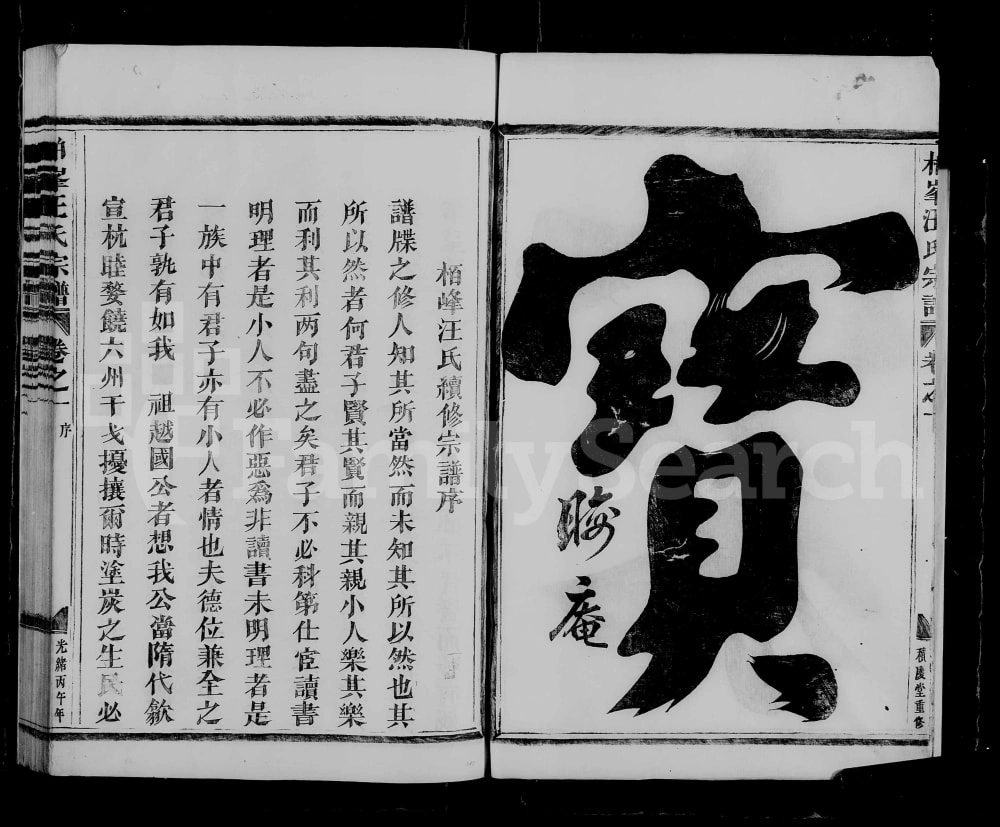 寶
晦庵
柏峯汪氏宗譜
卷之一
積慶堂重修
栢峰汪氏續修宗譜序
譜牒之修人知其所當然而未知其所以然也其
所以然者何君子賢其賢而親其親小人樂其樂
而利其利两句盡之矣君子不必科第仕宦讀書
明理者是小人不必作惡為非讀書未明理者是
一族中有君子亦有小人者情也夫德位兼全之
君子孰有如我 祖越國公者想我公當隋代歙
宣杭睦婺饒六州干戈擾攘爾時塗炭之生民必
柏峯汪氏宗譜
卷之一
序
光緒丙午年
FamilySearch